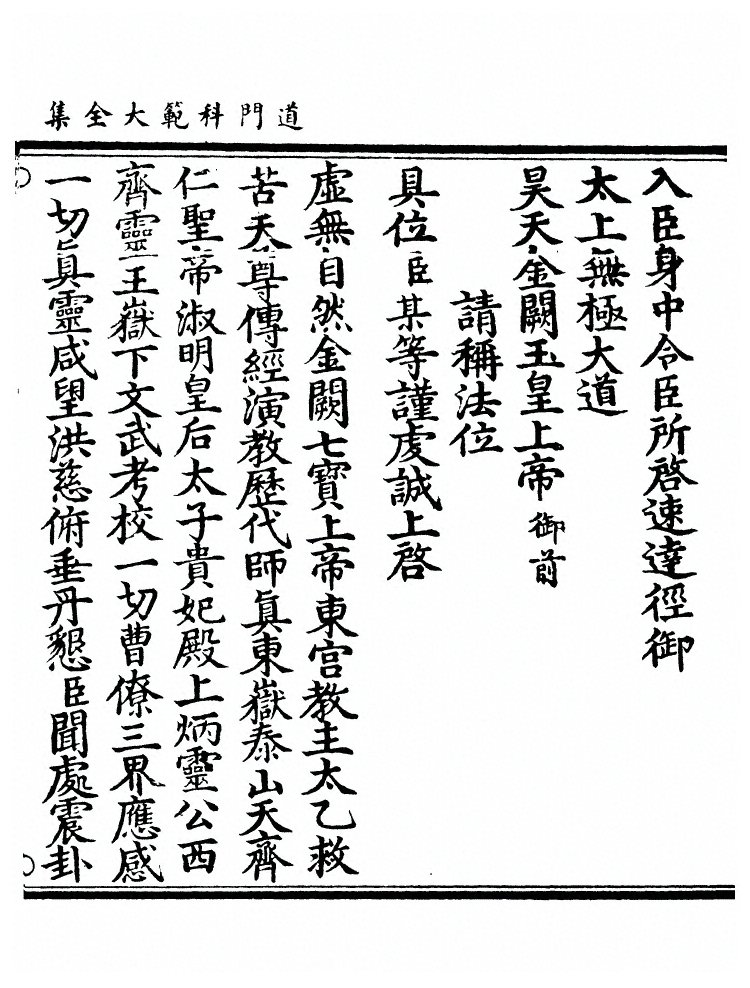 道門科範大全集
入臣身中令臣所啓速達徑御
太上無極大道
昊天金闕玉皇上帝御前
請稱法位
具位臣某等謹虔誠上啓
虛無自然金闕七寶上帝東宮教主太乙救
苦天尊傳經演教歷代師眞東嶽泰山天齊
仁聖帝淑明皇后太子貴妃殿上炳靈公西
齊靈王嶽下文武考校一切曹僚三界應感
一切眞靈咸望洪慈俯垂丹懇臣聞處震卦